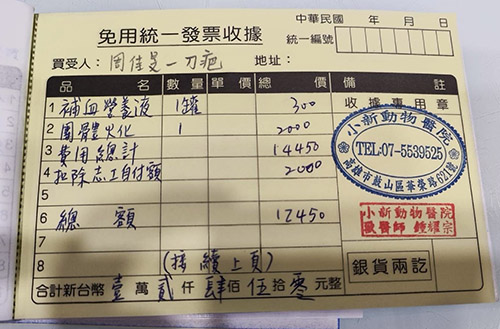 中華民國 年 月 日
免用統一發票收據
統一編號
買受人：周佳旻-刀疤 地址：
品名 數量 單價 總價 備註
1 補血營養液 1罐 300 收據專用章
2 團體火化 1 2000
3 費用總計 14450
4 扣除志工自付額 2000
5
6 總額 12450
7
8 (接續上頁)
小新動物醫院
TEL:07-5539525
高雄市鼓山區華榮路621號
小新動物醫院
獸醫師 鍾耀宗
銀貨兩訖
合計新台幣 壹 萬 貳 仟 肆 佰 伍 拾 零 元整